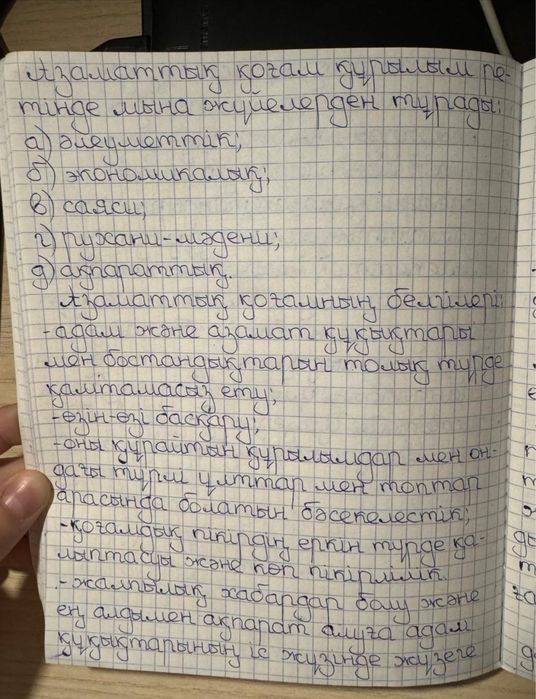 Азаматтық қоғам құрылым ре-
тінде мына жүйелерден тұрады:
а) әлеуметтік;
б) экономикалық;
в) саяси;
г) рухани-мәдени;
д) ақпараттық.
Азаматтық қоғамның белгілері:
-адам және азамат құқықтары
мен бостандықтарын толық түрде
қамтамасыз ету;
-өзін-өзі басқару;
-оны құрайтын құрылымдар мен он-
дағы түрлі ұлттар мен топтар
арасында болатын бәсекелестік;
-қоғамдық пікірдің еркін түрде қа-
лыптасуы және көп пікірлілік.
-жалпылық хабардар болу және
ең алдымен ақпарат алуға адам
құқықтарының іс жүзінде жүзеге